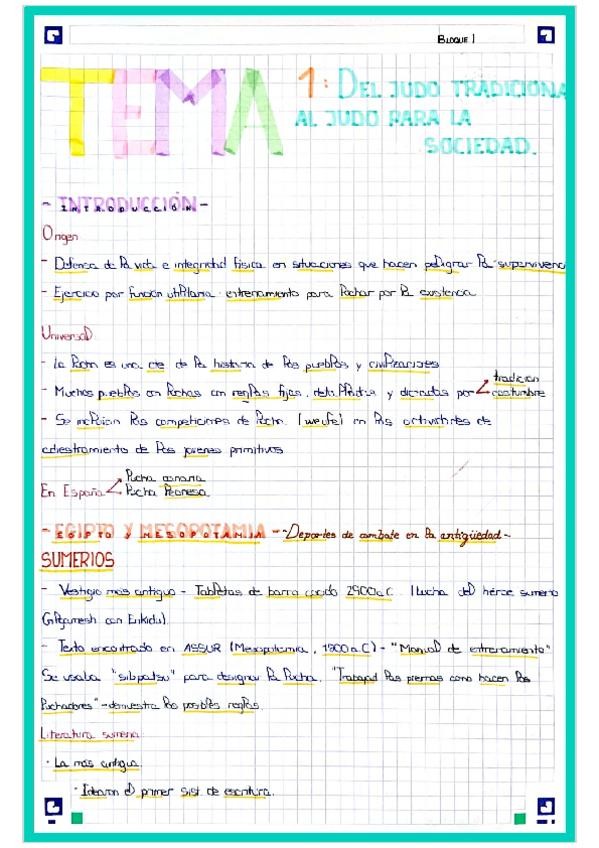 BLOQUE 1
TEMA 1: DEL JUDO TRADICIONA
AL JUDO PARA LA
SOCIEDAD.
- INTRODUCCIÓN -
Origen
- Defensa de la vida e integridad física en situaciones que hacen peligrar la supervivenc
- Ejercicio por función utilitaria: entrenamiento para luchar por la existencia
Universal
- La lucha es una cte de la historia de los pueblos y civilizaciones
- Muchos pueblos con luchas con reglas fijas, delimitadas y dictadas por tradición
costumbre
- Se incluían las competiciones de lucha (weufe) en las actividades de
adiestramiento de los jovenes primitivos
En España lucha canaria
lucha leonesa
- EGIPTO Y MESOPOTAMIA - - Deportes de combate en la antigüedad -
SUMERIOS
- Vestigio mas antiguo - Tabletas de barro cocido 2900a.C. (lucha del héroe sumerio
Gilgamesh con Enkidu).
- Texto encontrado en ASSUR (Mesopotamia, 1900a.C) - "Manual de entrenamiento"
Se usaba para designar la lucha. "Trabajad las piernas como hacen los
luchadores" - demuestra las posibles reglas.
Literatura sumeria
· La mas antigua.
· Idearon el primer sist. de escritura.